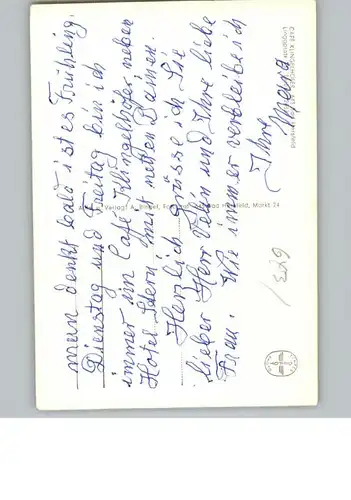 man denkt bald ist es Frühling.
Dienstag und Freitag bin ich
immer im Café Klingelhöfer neben
Hotel Stern mit netten Damen.
Herzlich grüsse ich Sie
lieber Herr und Ihre liebe
Frau. Wie immer verbleibe ich
Ihre
Mara
CAFÉ KLINGELHÖFER
Verlag: A. Markt 24